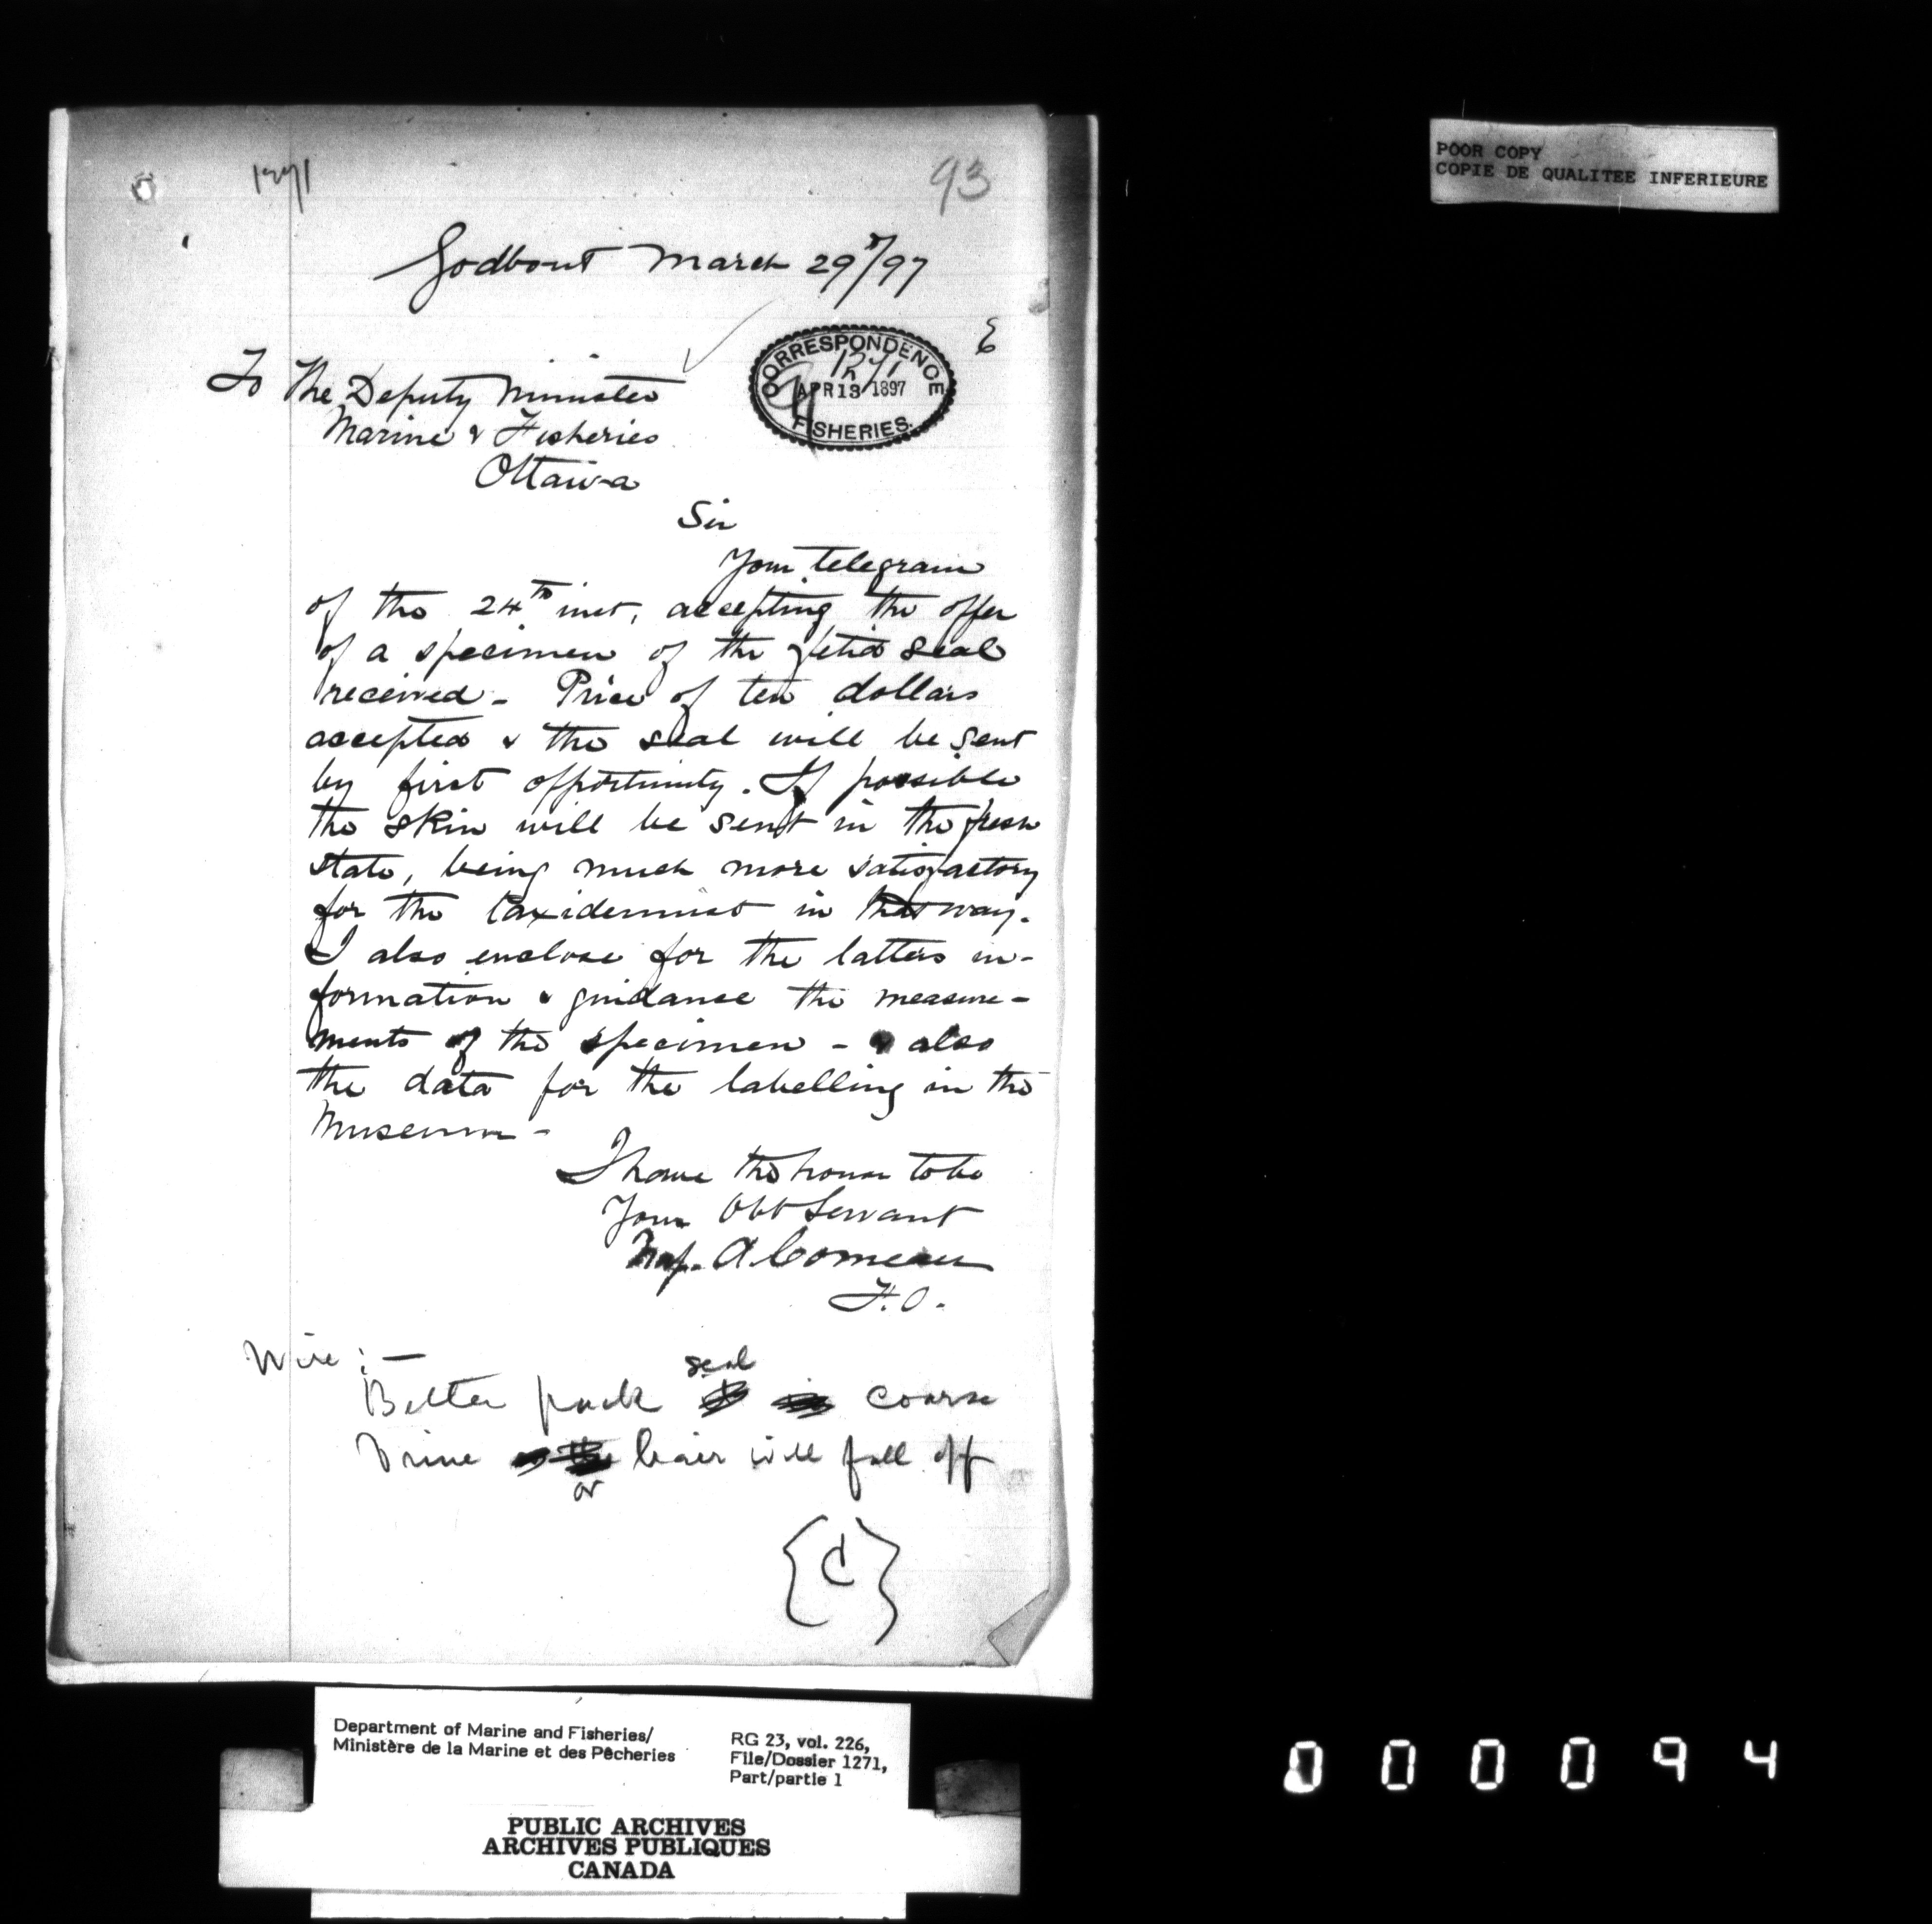 1271
93
Godbout March 29th/97
E
To The Deputy Minister
Marine & Fisheries
Ottawa
CORRESPONDENCE
1271
APR 13 1897
FISHERIES.
Sir
Your telegram
of the 24th inst, accepting the offer
of a specimen of the fetid seal
received - Price of ten dollars
accepted & the seal will be sent
by first opportunity. If possible
the skin will be sent in the fresh
state, being much more satisfactory
for the taxidermist in that way.
I also enclose for the latters in-
formation & guidance the measure-
ments of the specimen - & also
the data for the labelling in the
Museum -
I have the honor to be
Your Obt Servant
Nap. A Comeau
F.O.
Wire : —
Better pack seal coarse
brine or hair will fall off
C
POOR COPY
COPIE DE QUALITEE INFERIEURE
Department of Marine and Fisheries/
Ministère de la Marine et des Pêcheries
RG 23, vol. 226,
File/Dossier 1271,
Part/partie 1
PUBLIC ARCHIVES
ARCHIVES PUBLIQUES
CANADA
000094